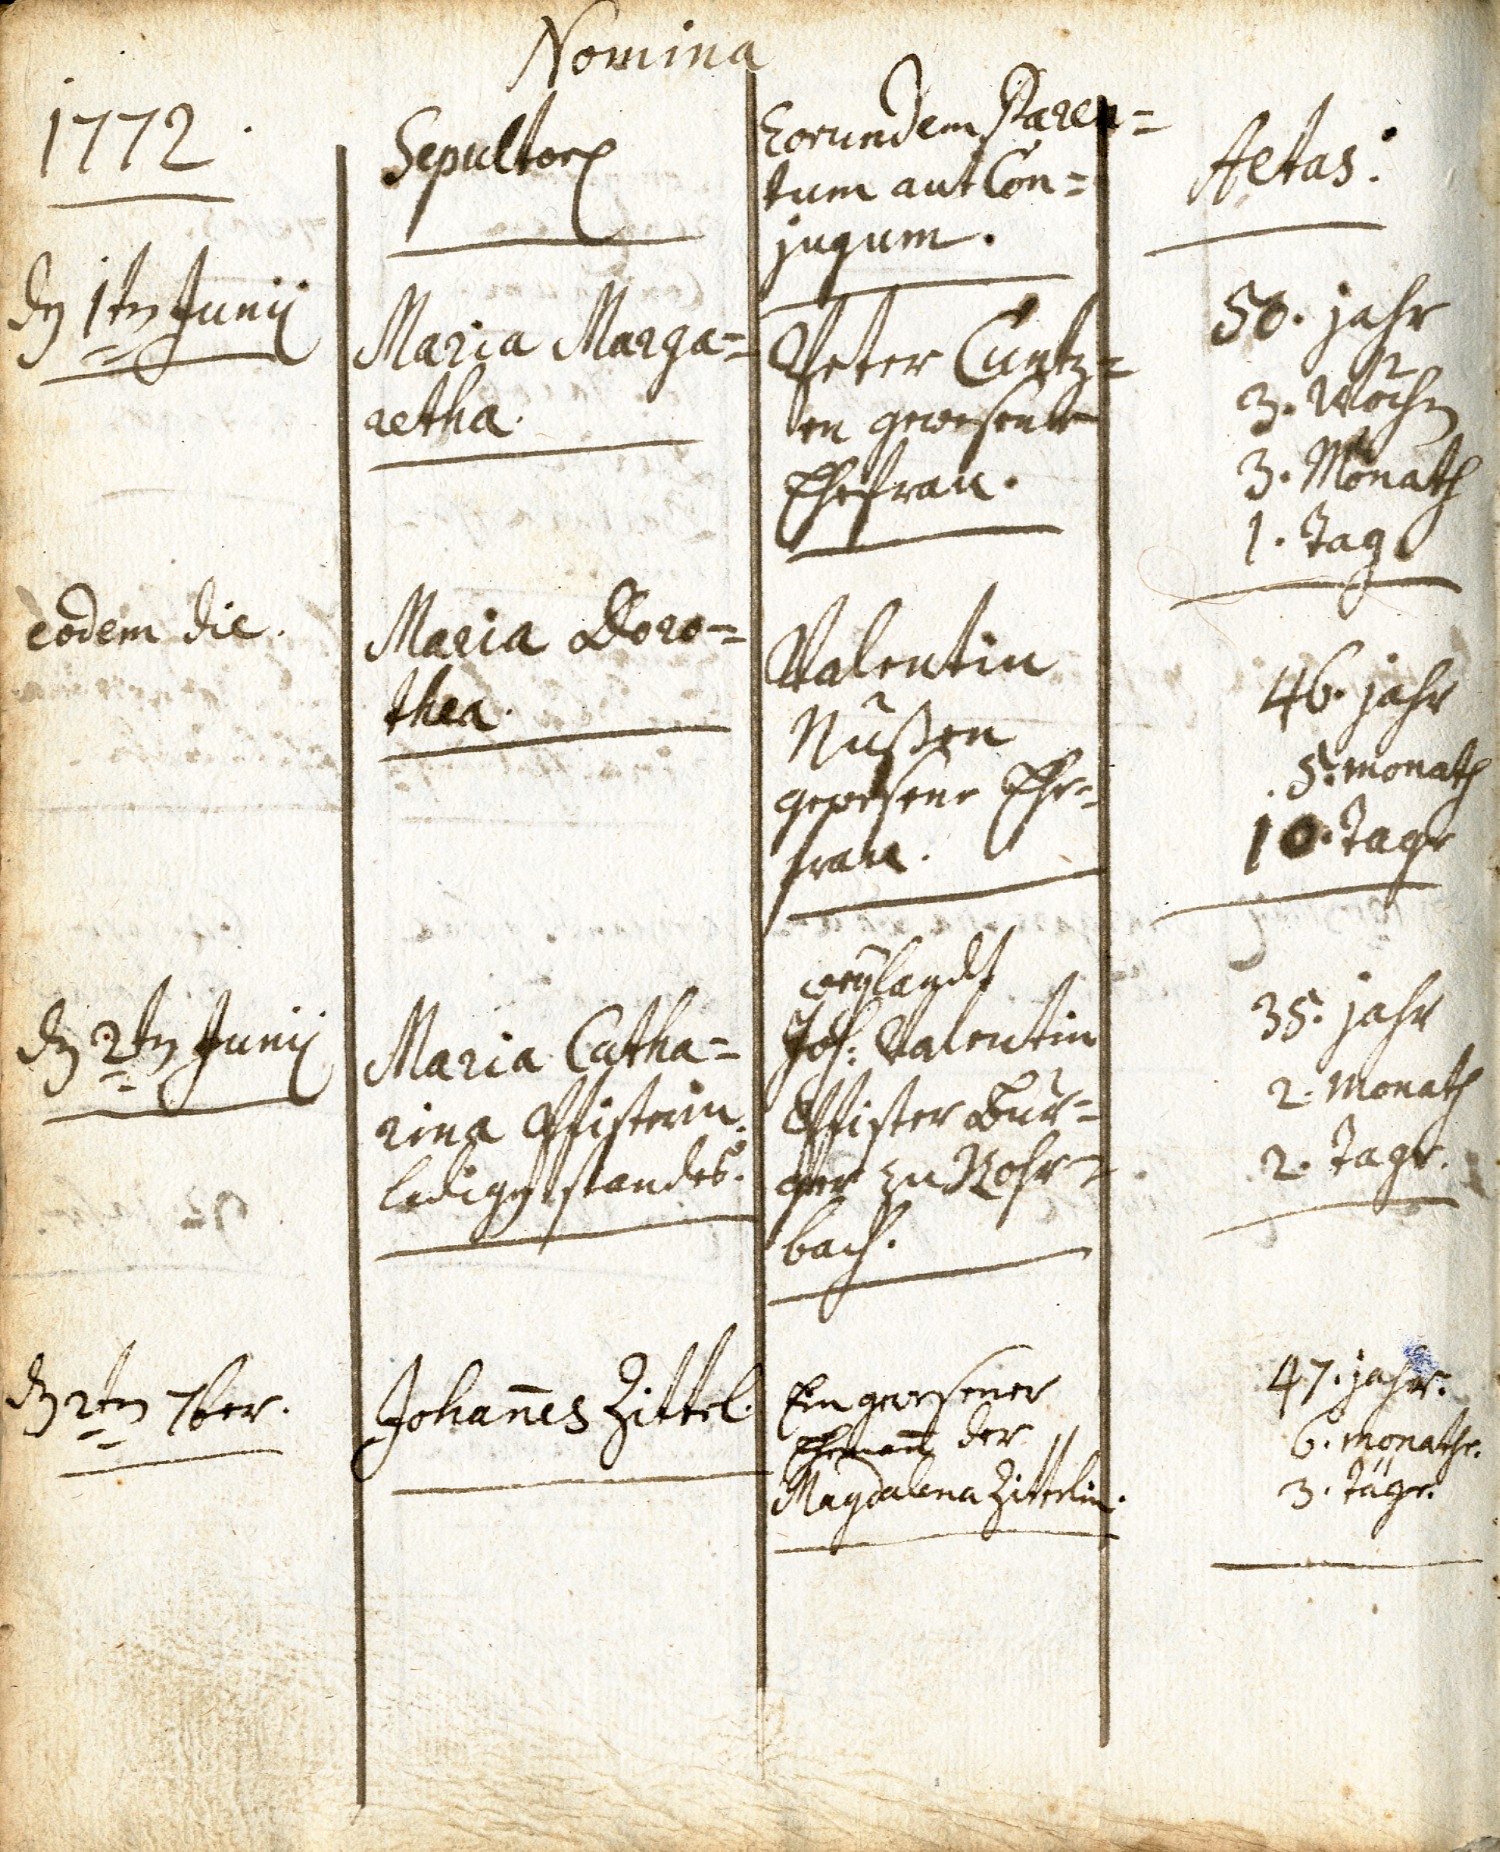 Nomina
1772.
Sepultor
Eorundem Paren=
tum aut Con=
jugum.
Aetas.
dn 1tn Junij
Maria Marga=
retha.
Peter Cuntz=
en gewesene
Ehefrau.
50. jahr
3. Wochn
3. Monath
1. Tag
eodem die.
Maria Doro=
thea.
Valentin
Nußen
gewesene Ehe=
frau.
46. jahr
5. monath
10. Tage
dn 2tn Junij
Maria Catha=
rina Pfisterin.
ledign standes.
weylandt
Joh: Valentin
Pfister Bur=
ger zu Rohr=
bach.
35. jahr
2. Monath
2. Tage.
dn 2tn 7ber.
Johan̄es Zittel.
Ein gewesener
Eheman̄ der
Magdalena Zittelin.
47. jahr.
6. monathe.
3. Täge.